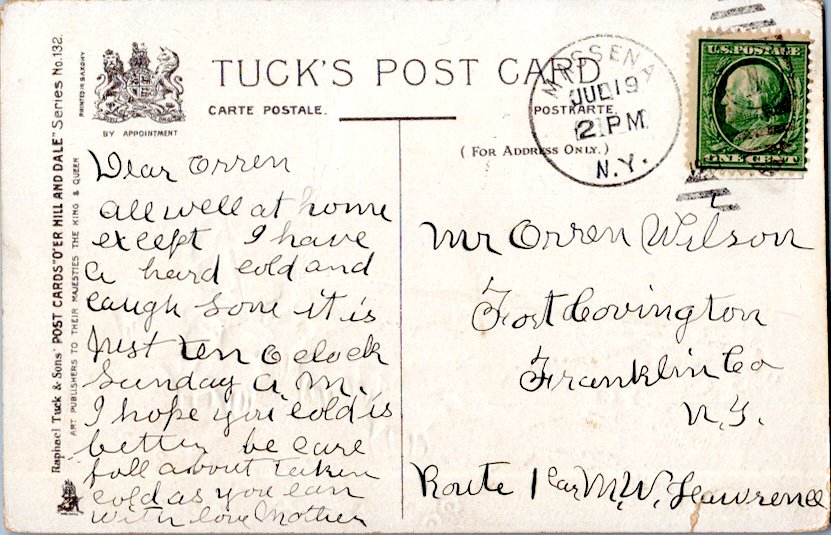 Raphael Tuck & Sons' POST CARDS "O'ER HILL AND DALE" Series No. 132.
ART PUBLISHERS TO THEIR MAJESTIES THE KING & QUEEN
PRINTED IN SAXONY
BY APPOINTMENT
TUCK'S POST CARD
CARTE POSTALE.
POSTKARTE.
(FOR ADDRESS ONLY.)
MASSENA
JUL 19
2 PM
N.Y.
U.S. POSTAGE
ONE CENT
Dear Orren
all well at home
except I have
a hard cold and
caugh Sone it is
Just ten O clock
Sunday A M.
I hope you cold is
better be care
full about taken
cold as you can
with love Mother
Mr Orren Wilson
Fort Covington
Franklin Co
N.Y.
Route 1 car M. W. Lawrence